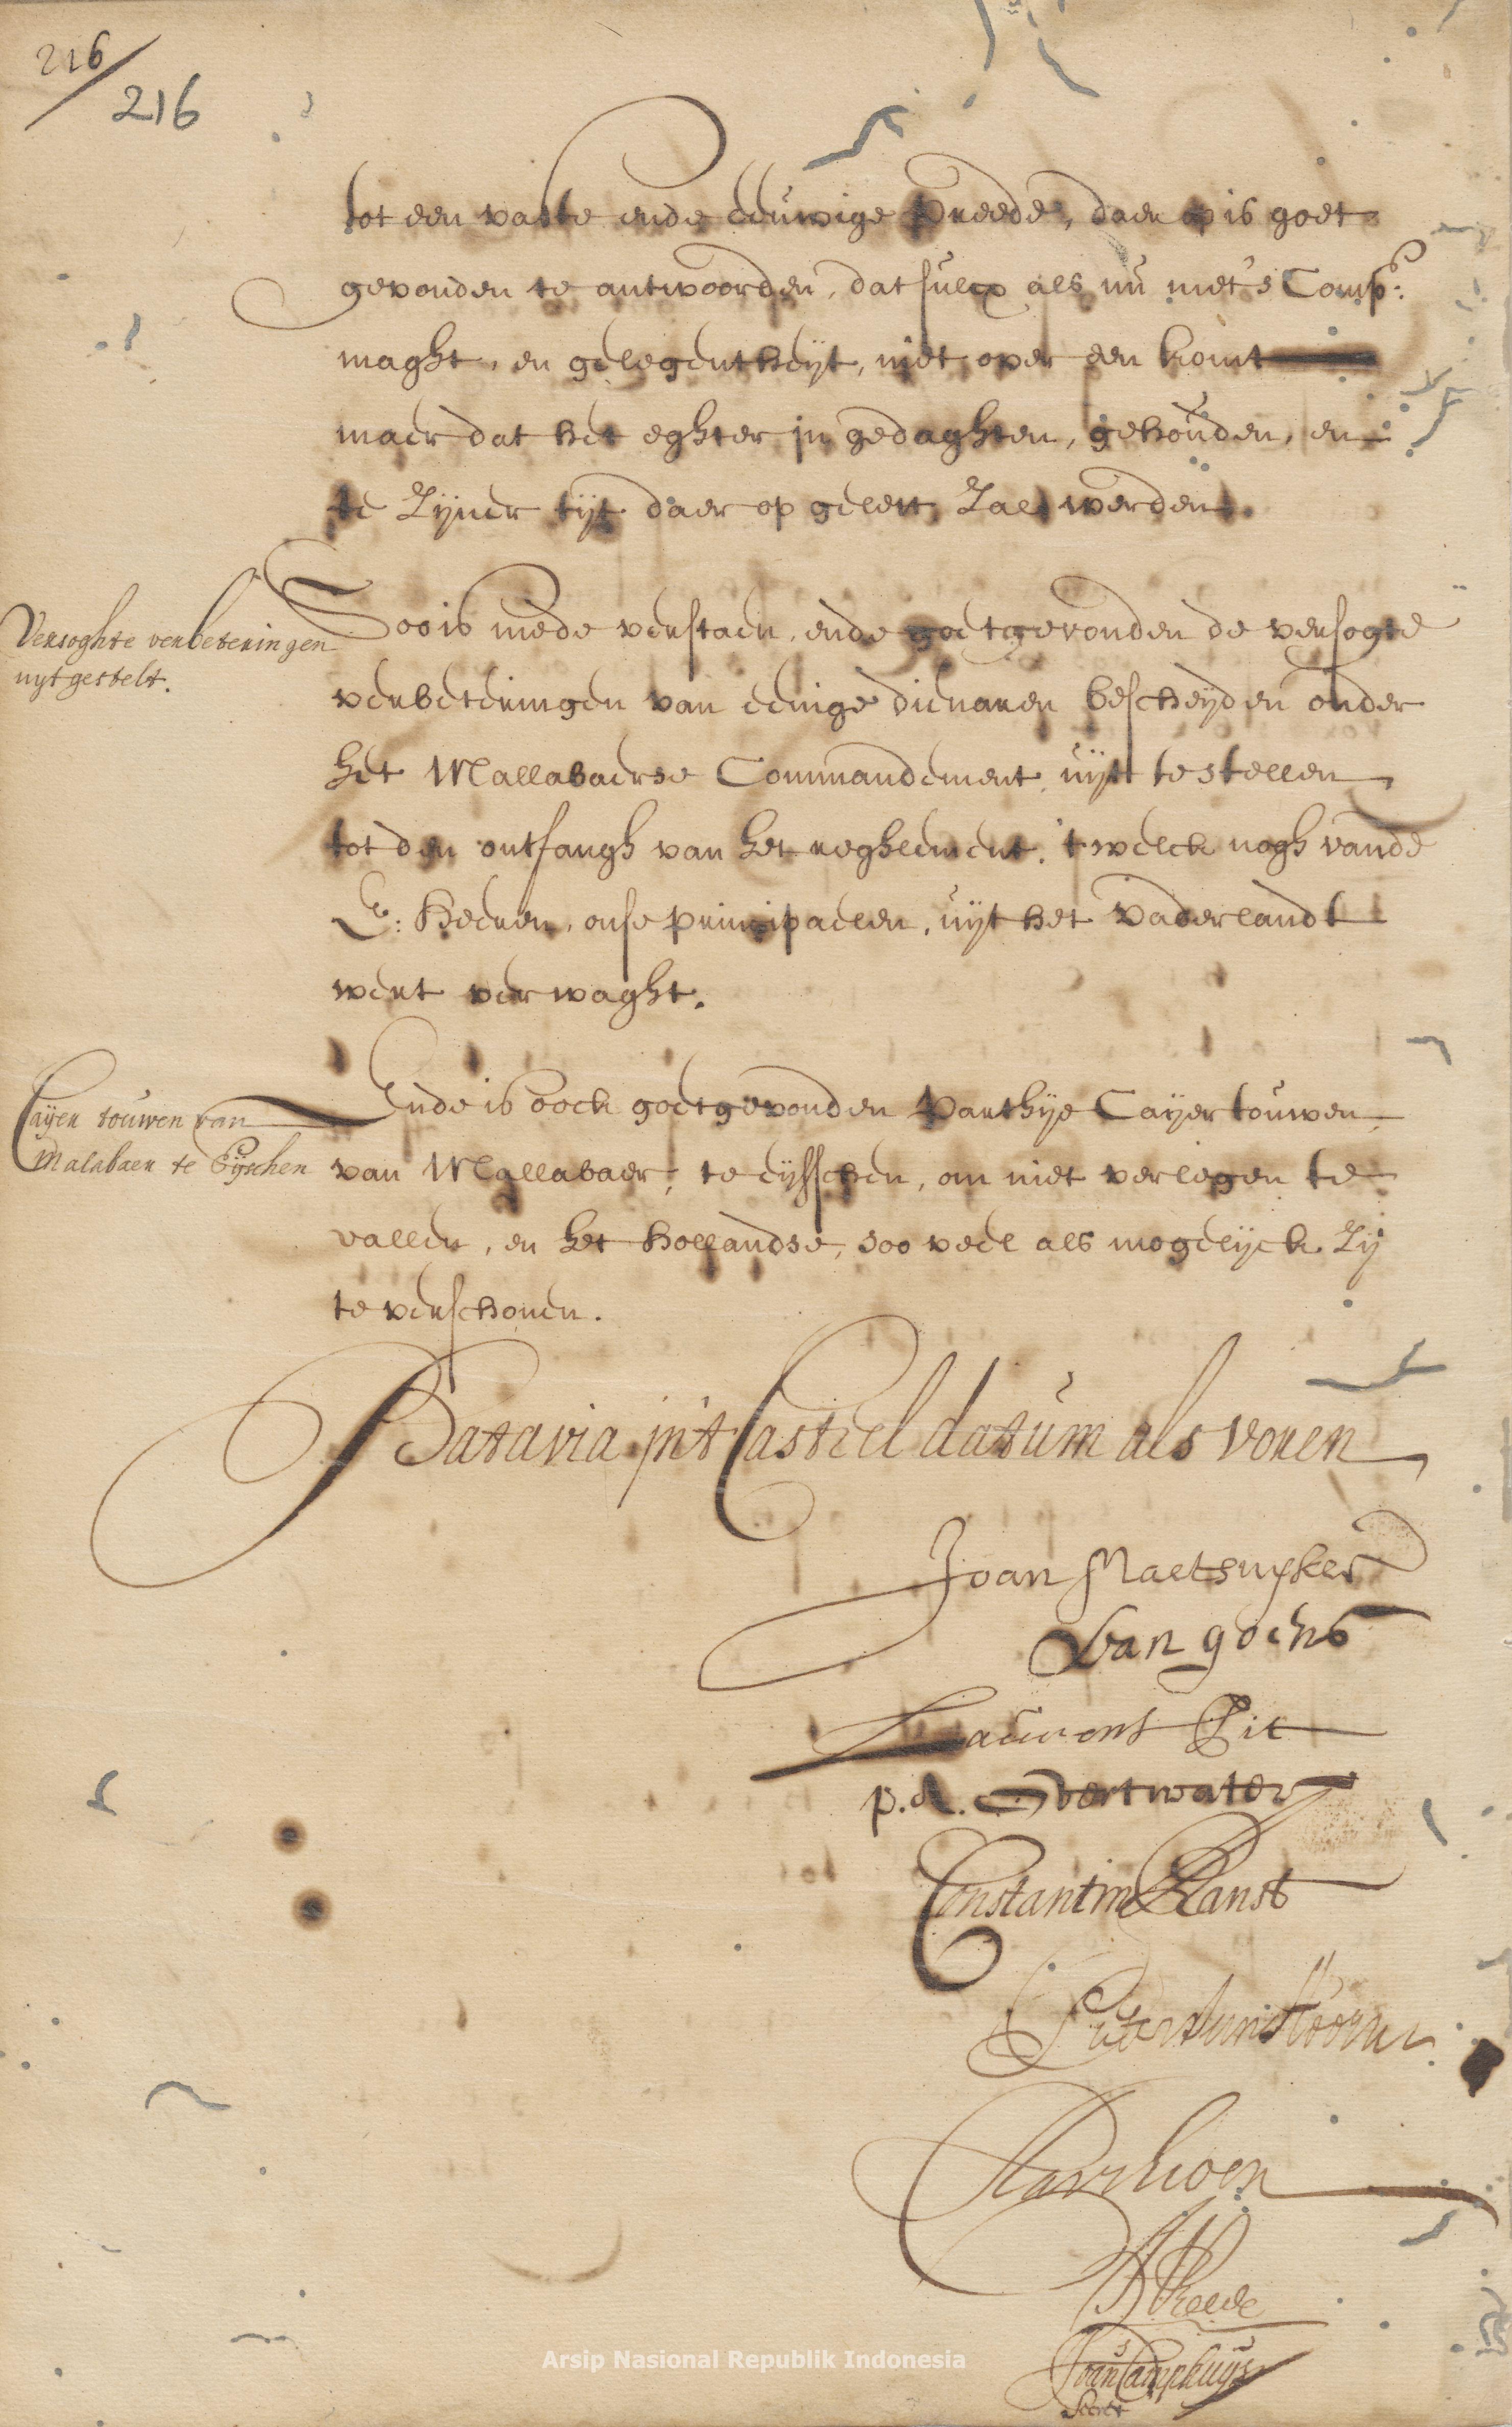 216
216
tot een vaste ende eeuwige vreede, daer op is goet
gevonden te antwoorden, dat sulcx als nu met 's Comp:
maght, en gelegentheyt, niet over een komt
maer dat het eghter in gedaghten, gehouden, en
te zijner tijt daer op gelett, zal werden.
Versoghte verbeteringen
uytgestelt.
Soo is mede verstaen, ende goetgevonden de versogte
verbeteringen van eenige dienaren bescheyden onder
het Mallabaerse Commandement, uijt te stellen
tot den ontfangh van het reghlement, 't welck nogh vande
E: Heeren, onse principaelen, uijt het vaderlandt
wert verwaght.
Cayer touwen van
Malabaer te Eyschen
Ende is oock goetgevonden parthije Caijer touwen
van Mallabaer, te eijsschen, om niet verlegen te
vallen, en het hollandse, soo veel als mogelijck zij
te verschonen.
Batavia in't Casteel datum als voren
Joan Maetsuyker
Van goens
Laurens Pit
p. A. Overtwater
Constantin Ranst
Pieter Anthonisz
van hoorn
AV Reede
Joannes Camphuys
Secrets
Arsip Nasional Republik Indonesia